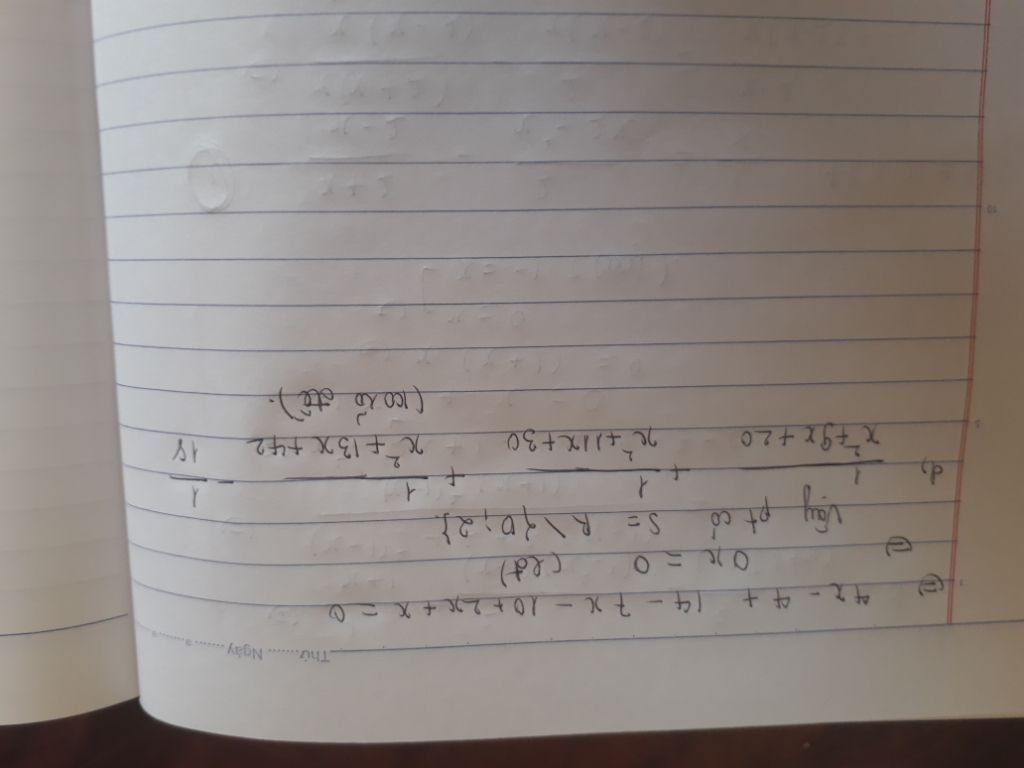 Thứ........ Ngày ........
⇔ 4x - 4 + 14 - 7x - 10 + 2x + x = 0
⇔ 0x = 0 (lđ)
Vậy pt có S = R \ {0; 2}.
d, 1/(x² + 9x + 20) + 1/(x² + 11x + 30) + 1/(x² + 13x + 42) = 1/18
(ko rõ đề).